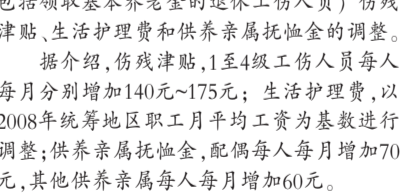 包括领取基本养老金的退休工伤人员）伤残
津贴、生活护理费和供养亲属抚恤金的调整。
据介绍，伤残津贴，1至4级工伤人员每人
每月分别增加140元~175元；生活护理费，以
2008年统筹地区职工月平均工资为基数进行
调整；供养亲属抚恤金，配偶每人每月增加70
元，其他供养亲属每人每月增加60元。